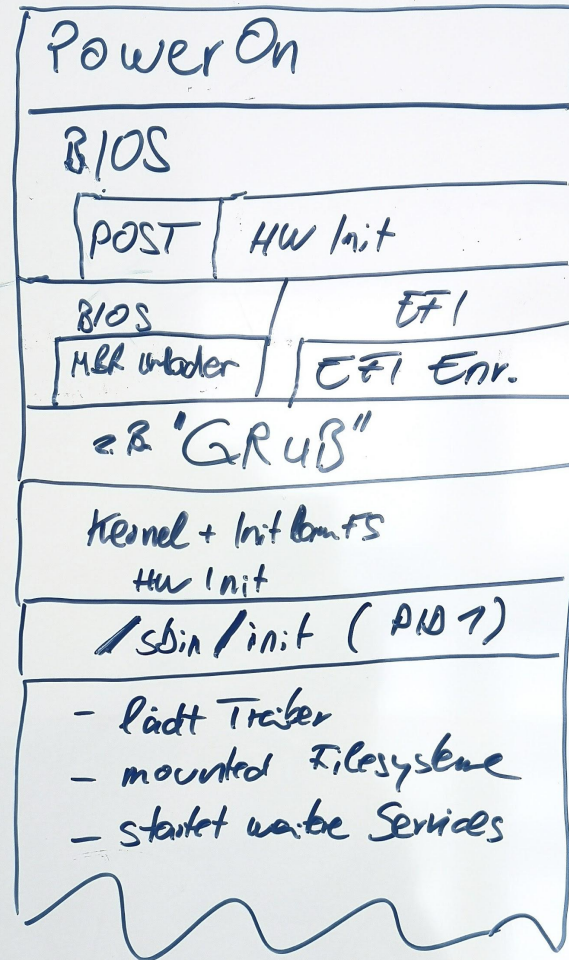 Power On
BIOS
POST HW Init
BIOS / EFI
MBR EFI Env.
z.B "GRUB"
Kernel + InitRamFS
HW Init
/sbin/init (PID 1)
- lädt Treiber
- mounted Filesysteme
- startet weitere Services